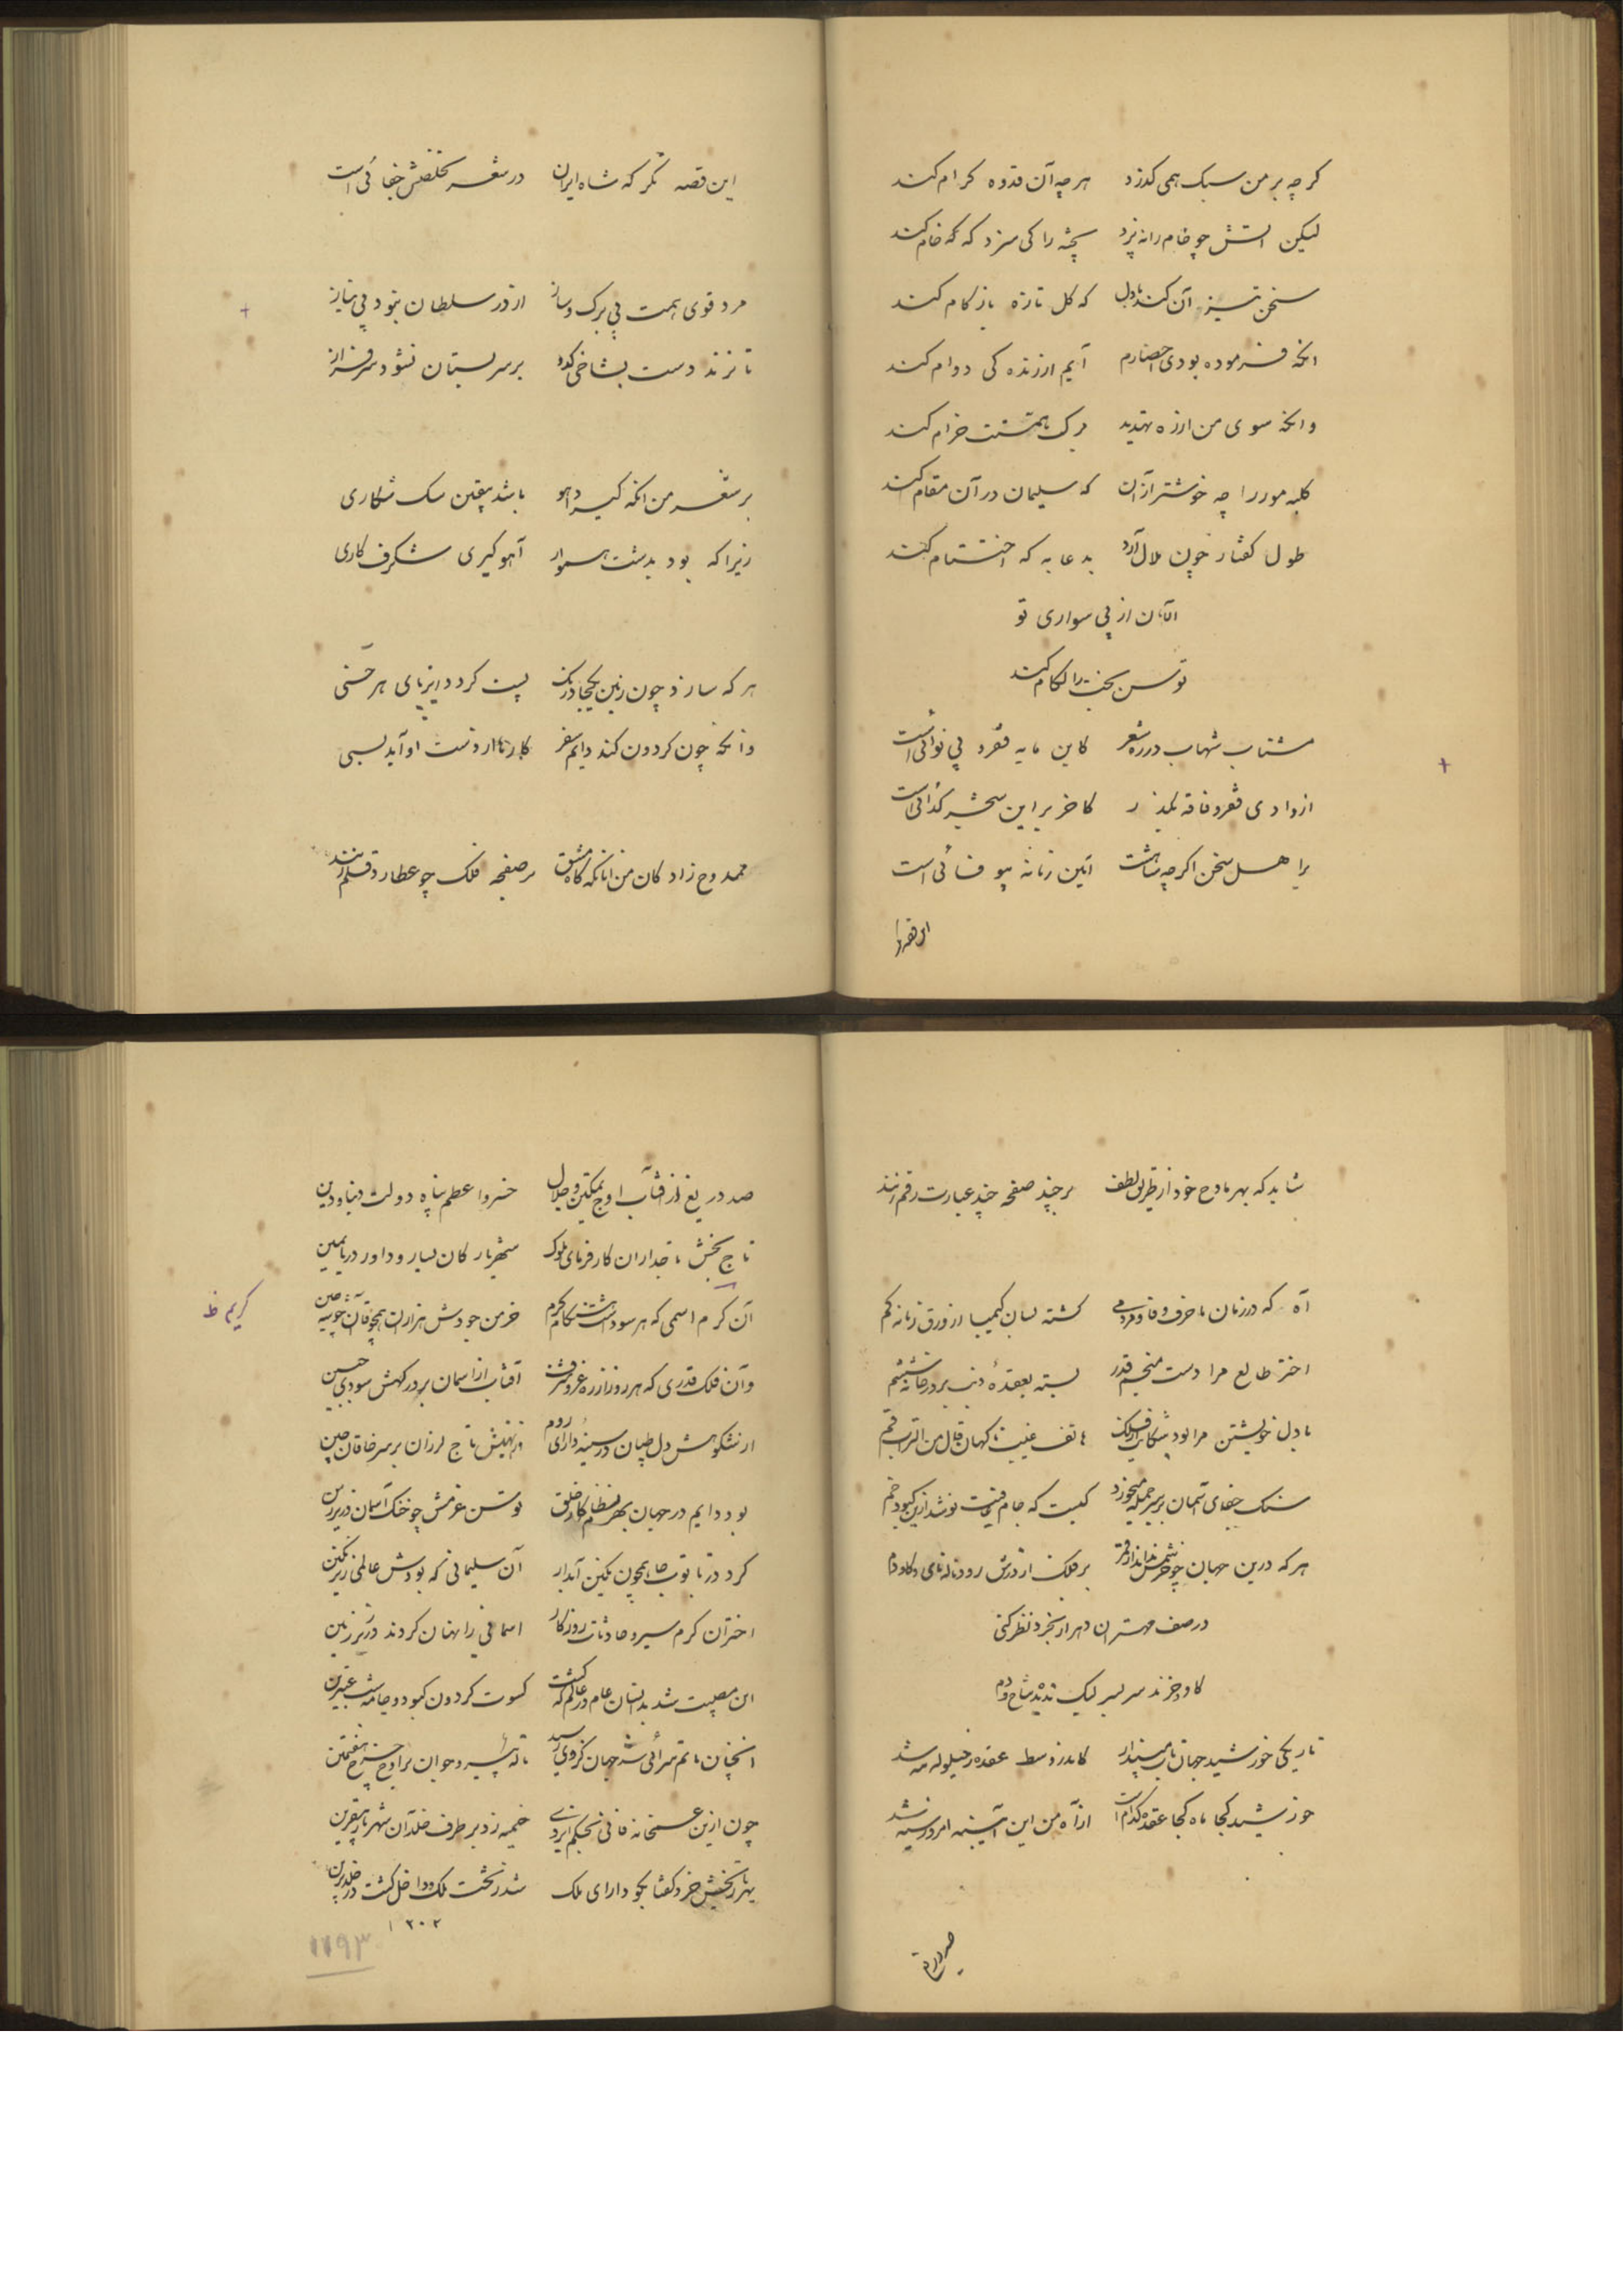 کرچه بر من سبک همی کذرد هرچه آن قدوه کرام کند
لیکن آتش چو خام را نه پزد پخته را کی سزد که که خام کند
سخن تیز آن کند با دل که کل تازه باز کام کند
انکه فرموده بودی احضارم آیم ار زنده کی دوام کند
وانکه سوی من از ره تهدید مرک با همتت خرام کند
کلبه مور را چه خوشتر از آن که سلیمان در آن مقام کند
طول کفتار چون ملال آرد بدعا به که اختتام کند
از پی سواری تو
توسن بخت را لکام کند
مشتاب شهاب در ره شعر کاین مایه فقر و بی نوائی است
از وادی فقر و فاقه بکذر کاخر بر این سخن کدائی است
بر اهل سخن اکرچه آئین زمانه بیوفائی است
این قصه
این قصه نکر که شاه ایران در شعر تخلصش خفائی است
مرد قوی همت بی برک و ساز از در سلطان بنود بی نیاز
تا نزند دست بشاخی کدو بر سر بستان نشود سرفراز
بر شعر من انکه کیرد آهو باشد بیقین سک شکاری
زیرا که بود بدشت هموار آهو کیری شکرف کاری
هر که سازد چون زمین یکجا درنک پست کردد زیر پای هر خسی
وانکه چون کردون کند دایم سفر کارها از دست او آید بسی
ممدوح زادکان من انانکه کاه مشق بر صفحه فلک چو عطارد قلم زنند
شاید که بهر مادح خود از طریق لطف بر چند صفحه چند عبارت رقم زنند
آه که در زمان ما حرف وفا و مردمی کشته بسان کیمیا از ورق زمانه کم
اختر طالع مرا دست منجم قدر بسته بعقدهٔ ذنب بر در خانه ششم
با دل خویشتن مرا بود شکایت از فلک هاتف غیب ناکهان قال من التراب قم
سنک جفای آسمان بر سر جمله میخورد کیست که جام عافیت نوشد ازین کبود خم
هر که درین جهان چو خر بر فلک از درش رود ناله نای و کاودم
در صف مهتران دهر از بخرد نظر کنی
کاو و خرند سر بسر لیک ندیده شاخ و دم
تاریکی خورشید جهانتاب مپندار کاندر وسط عقده ز حیلوله مه شد
خورشید کجا ماه کجا عقده کدام است از آه من این آینه امروز سیه شد
صد دریغ
صد دریغ از آفتاب اوج تمکین و جلال خسرو اعظم پناه دولت دنیا و دین
تاج بخش تاجداران کارفرمای ملوک شهریار کان یسار و داور دریا یمین
آن کرم اسمی که هر سو داشت هنکام کرم خرمن جودش هزاران همچو قاآن خوشه چین
کریم ظ
وآن فلک قدری که هر روز از ره عز و شرف آفتاب از آسمان بر درکهش سودی جبین
از شکوهش دل طپان در سینهٔ دارای روم وز نهیبش تاج لرزان بر سر خاقان چین
بود دایم در جهان بهر نظام کار خلق توسن عزمش چو خنک آسمان در زیر زین
کرد در تابوت جا همچون نکین آبدار آن سلیمانی که بودش عالمی زیر نکین
اختران کرم سیر و حادثات روزکار آسمانی را نهان کردند در زیر زمین
این مصیبت شد بدانسان عام در عالم که کشت کسوت کردون کبود و جامه شب عنبرین
آنچنان ماتم سرائی شد جهان کز وی رسید ناله پیر و جوان بر اوج چرخ هفتمین
چون ازین غمخانه فانی بحکم ایزدی خیمه زد بر طرف خلد آن شهریار بیقرین
بهر تاریخش خرد کفتا بکو دارای ملک شد ز تخت ملک و داخل کشت در خلد برین
۱۲۰۲
۱۱۹۳